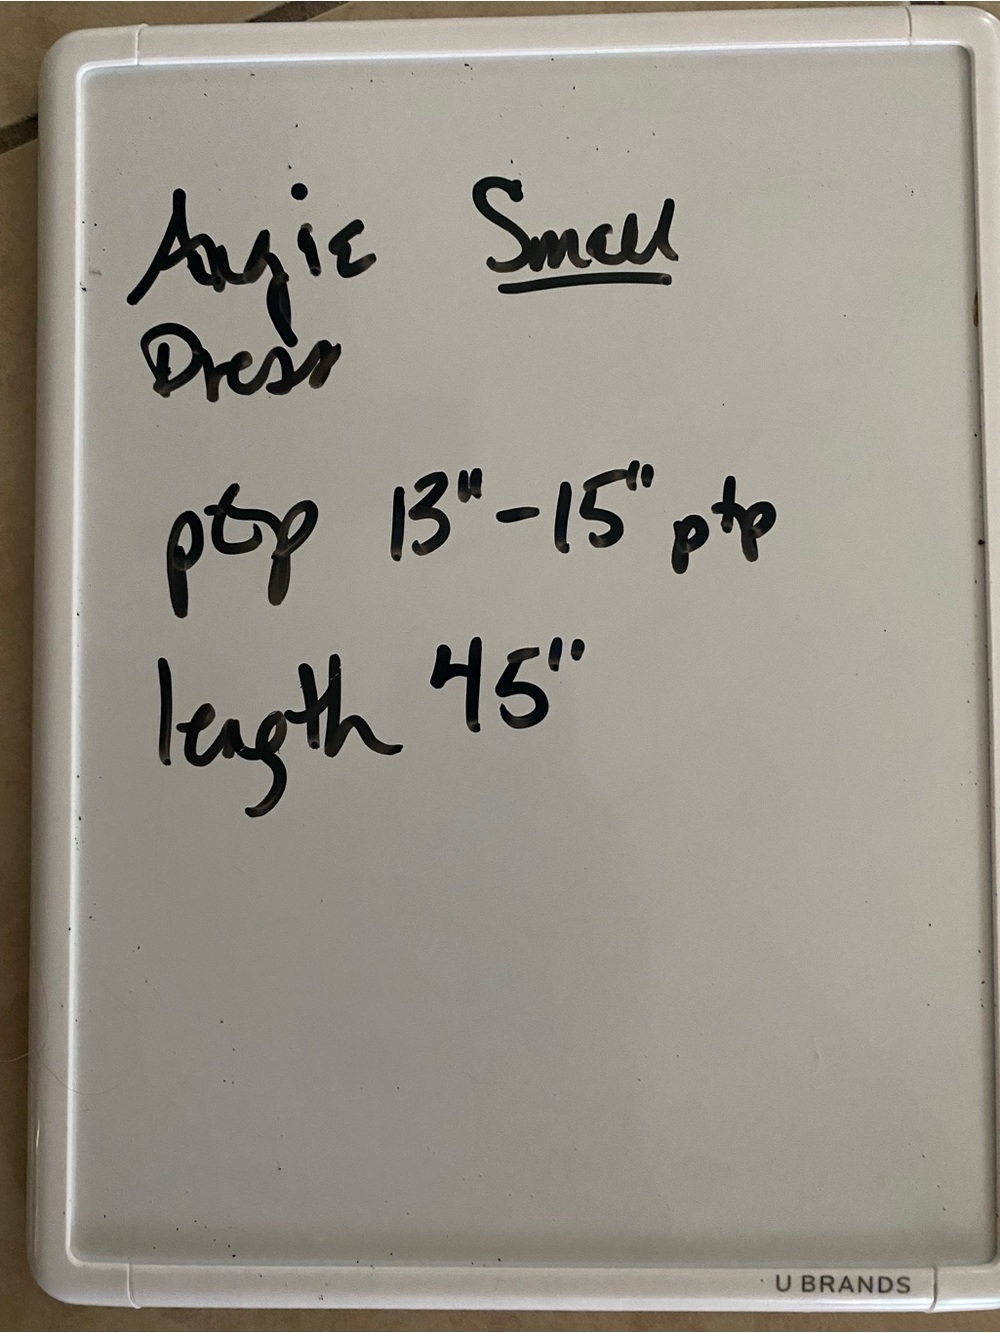 Angie Small
Dress
ptp 13"-15" ptp
length 45"
U BRANDS